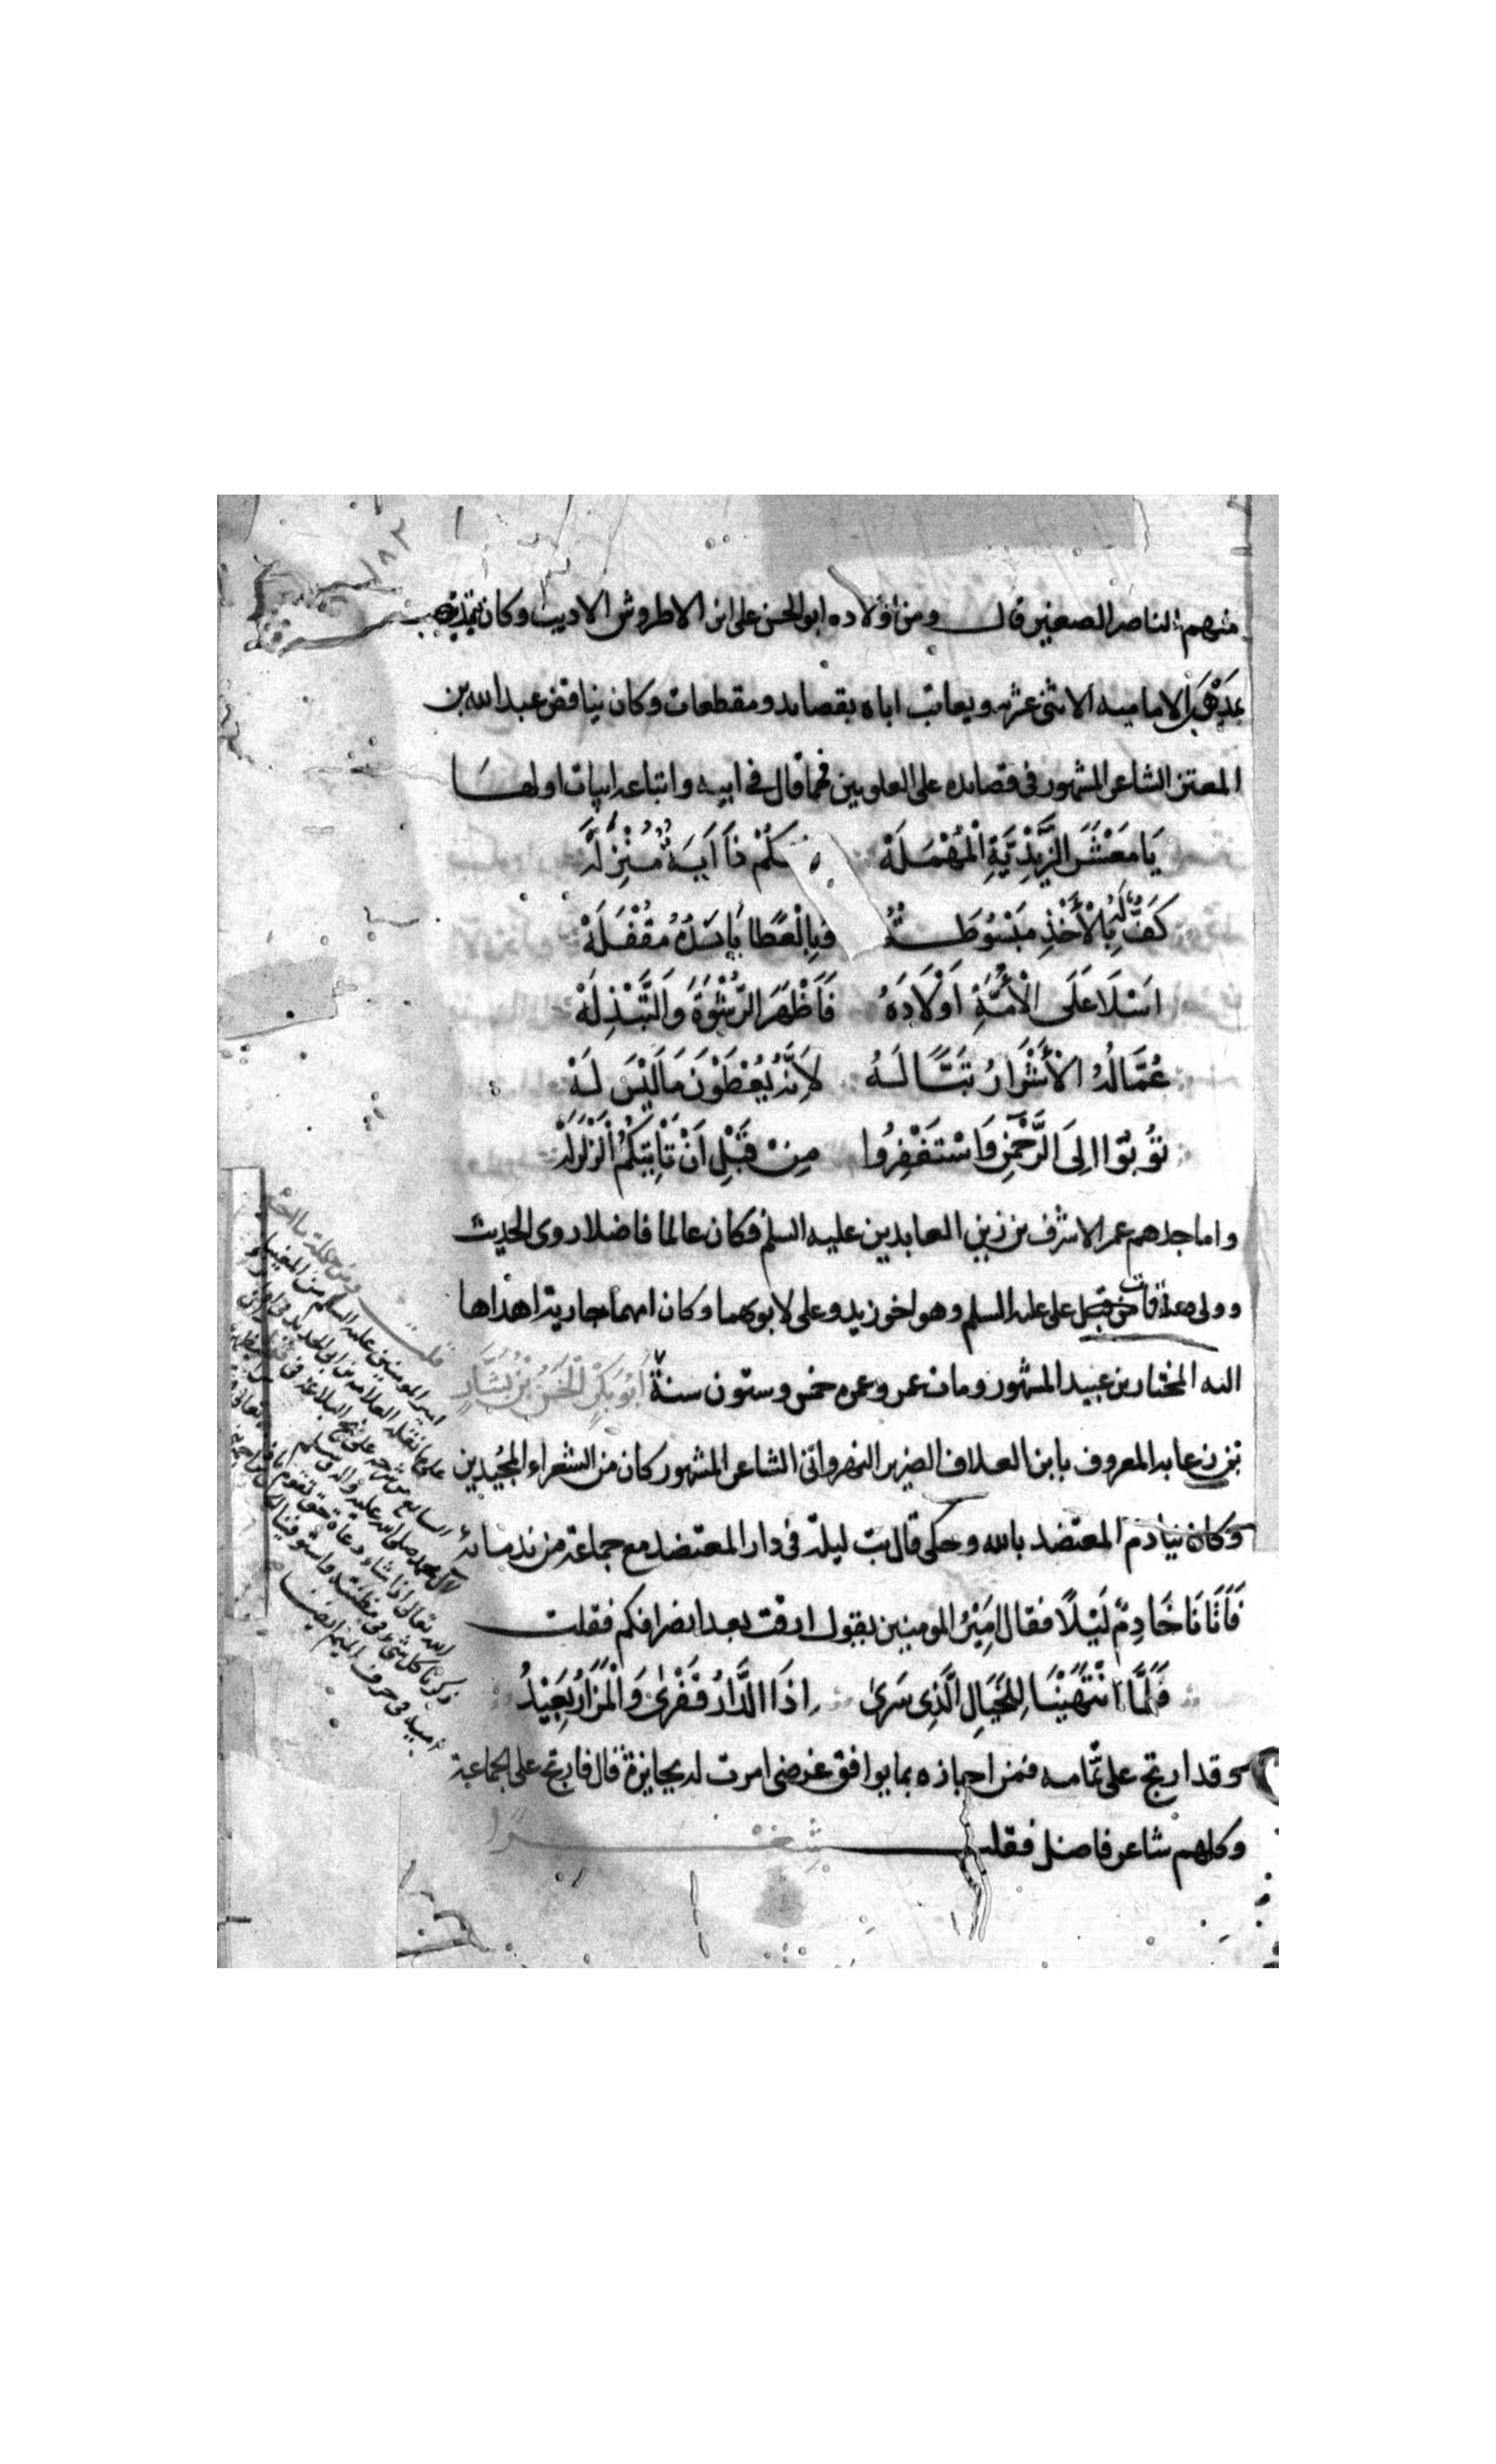 ١٨٢
منهم الناصر الصغير قال ومن اولاده ابو الحسن على ابن الاطروش الاديب وكان يتمذهب
بمذهب الاماميه الاثنى عشريه ويعاتب اباه بقصايد ومقطعات وكان يناقض عبد الله بن
المعتز الشاعر المشهور فى قصايده على العلويين فمما قال فى ابيه واتباعه ابيات اولها
يَا مَعْشَرَ الزَّيْدِيَّةِ الْمُهْمَلَهْ كُمْ ذَا آيَةٌ مُنْزَلَهْ
كَفٌّ لَهُ بِالْأَخْذِ مَبْسُوطَةٌ وَبِالْعَطَا يَابِسَةٌ مُقْفَلَهْ
اَسْلَا عَلَى الْأُمَّةِ اَوْلَادَهُ فَاَظْهَرَ الرُّشْوَةَ وَالتَّبْذِلَهْ
عُمَّالُهُ الْأَشْرَارُ تَبًّا لَهُ لِاَنَّهُ يُعْطَوْنَ مَا لَيْسَ لَهْ
تُوبُوا اِلَى الرَّحْمٰنِ وَاسْتَغْفِرُوا مِنْ قَبْلِ اَنْ تَأْتِيَكُمُ الزَّلْزَلَهْ
واما جدهم عمر الاشرف بن زين العابدين عليه السلم فكان عالما فاضلا روى الحديث
وولى صدقات على عليه السلم وهو اخو زيد وعلى لابوهما وكان امهما جارية اهداها
اليه المختار بن عبيد المشهور ومات عمر وعمره خمس وستون سنة اَبُو بَكْرٍ الْحَسَنُ بْنُ بَشَّارٍ
بن زيد عابد المعروف بابن العلاف الضرير النهروانى الشاعر المشهور كان من الشعراء المجيدين
وكان ينادم المعتضد بالله وحكى قال بت ليلة فى دار المعتضد مع جماعة من ندمائه
فَاَتَانَا خَادِمٌ لَيْلًا فقال اَمِيْرُ المومنين يقول ارقت بعد انصرافكم فقلت
فَلَمَّا انْتَهَيْنَا لِلْخَيَالِ الَّذِى سَرَى اِذَا الدَّارُ قَفْرَى وَالْمَزَارُ بَعِيْدُ
وقد ارتج على تمامه فمن اجازه بما يوافق غرضى امرت له بجايزة قال فارتج على الجماعة
وكلهم شاعر فاضل فقلت شِعْرًا
قلت ومن جملة ما اخبر
امير المومنين عليه السلم من المغيبات
على ما نقله العلامه ابن ابى الحديد فى
السابع من شرحه على نهج البلاغة فى
لآل محمد صلى الله عليه واله وسلم
الله تعالى اذا شاء دعاة حق تقوم
ذكرنا كل شئ فى مظنته واستوفينا
اميه فى حرف الميم ايضا